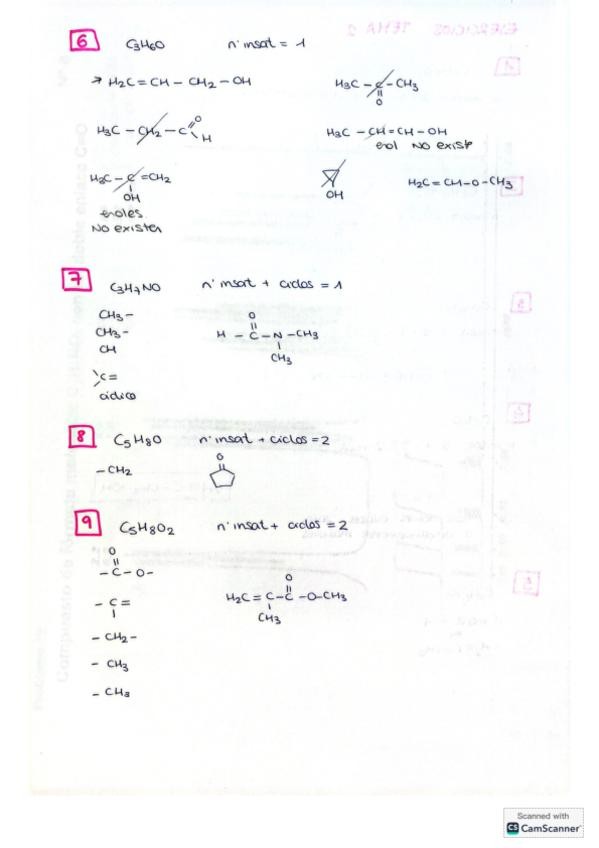 6 C3H6O nº insat = 1
→ H2C=CH-CH2-OH H3C-C-CH3
O
H3C-CH2-C O H H3C-CH=CH-OH
enol NO existe
H3C-C=CH2 OH H2C=CH-O-CH3
OH
enoles
NO existen
7 C3H7NO nº insat + ciclos = 1
CH3-
CH3-
CH
C=
cíclico
O
H-C-N-CH3
CH3
8 C5H8O nº insat + ciclos = 2
-CH2 O
9 C5H8O2 nº insat + ciclos = 2
O
-C-O-
-C=
-CH2-
-CH3
-CH3
O
H2C=C-C-O-CH3
CH3
Scanned with
CS CamScanner